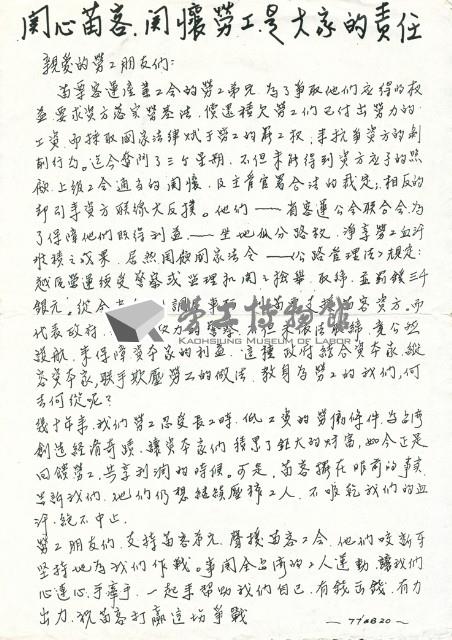 關心苗客.關懷勞工.是大家的責任
親愛的勞工朋友們:
苗栗客運產業工會的勞工弟兄.為了爭取他們應得的權
益.要求資方落實勞基法.償還積欠勞工們已付出勞力的
工資.而採取國家法律賦予勞工的罷工權.來抗爭資方的剝
削行為。迄今奮鬥了三個星期.不但未能得到資方應予的照
顧.上級工會適當的關懷.及主管官署合法的裁定;相反的
卻引來資方聯線大反撲。他們——省客運公會聯合會.為
了保障他們既得利益——坐地瓜分路權.淨享勞工血汗
堆積之成果.居然罔極國家法令——(公路管理法)規定:
越區營運須受警察或監理机關之檢舉.取締.並罰鍰三千
銀元。從今
苗客資方.而
代表政府.
警察.不但未依法取締.竟公然
護航.來保障資本家的利益.這種政府結合資本家.縱
容資本家,聯手欺壓勞工的做法.教身為勞工的我們,何
去何從呢?
幾十年來.我們勞工忍受長工時.低工資的勞働條件.為台灣
創造經濟奇蹟.讓資本家們積累了鉅大的財富,如今正是
回饋勞工.共享利潤的時候。可是.苗客擺在眼前的事實
告訴我們.他們仍想繼續壓榨工人.不吸乾我們的血
汗.絕不中止.
勞工朋友們.支持苗客弟兄.聲援苗客工會.他們咬斷牙
堅持地為我們作戰。事關全台灣的工人運動.讓我們
心連心.手牽手.一起來幫助我們自己.有錢出錢.有力
出力.祝苗客打贏這場爭戰
—77.8.20—
勞工博物館
KAOHSIUNG MUSEUM OF LABOR